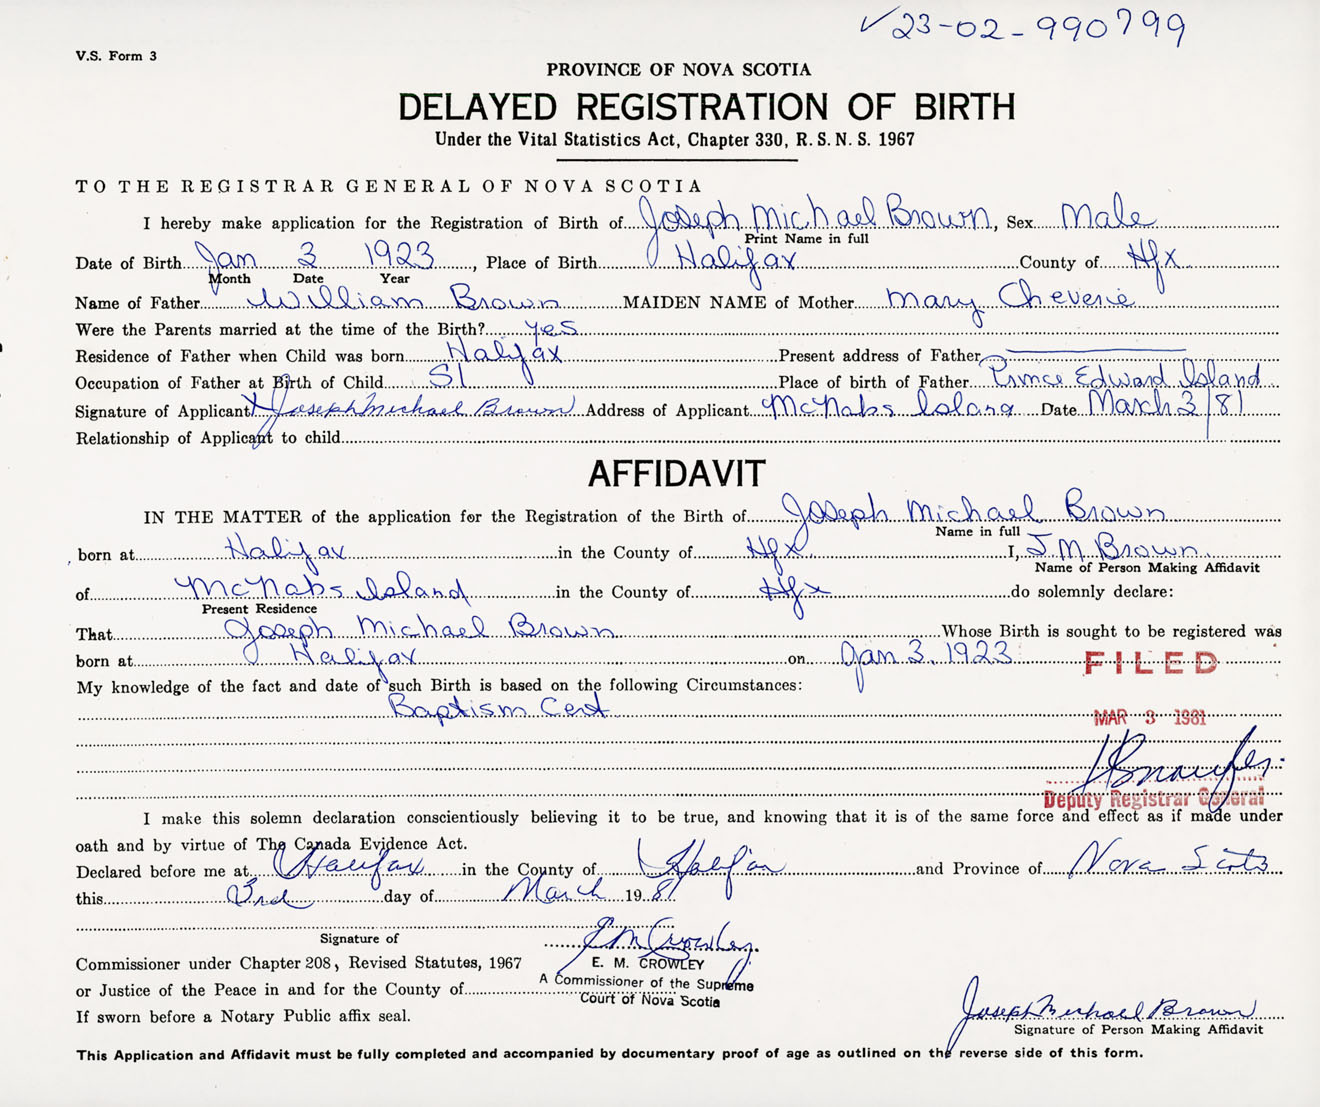 ✓23-02-990799
V.S. Form 3
PROVINCE OF NOVA SCOTIA
DELAYED REGISTRATION OF BIRTH
Under the Vital Statistics Act, Chapter 330, R. S. N. S. 1967
TO THE REGISTRAR GENERAL OF NOVA SCOTIA
I hereby make application for the Registration of Birth of Joseph Michael Brown, Sex Male
Print Name in full
Date of Birth Jan 3 1923, Place of Birth Halifax County of Hfx
Month Date Year
Name of Father William Brown MAIDEN NAME of Mother Mary Cheverie
Were the Parents married at the time of the Birth? yes
Residence of Father when Child was born Halifax Present address of Father
Occupation of Father at Birth of Child Place of birth of Father Prince Edward Island
Signature of Applicant X Joseph Michael Brown Address of Applicant McNabs Island Date March 3/81
Relationship of Applicant to child
AFFIDAVIT
IN THE MATTER of the application for the Registration of the Birth of Joseph Michael Brown
Name in full
born at Halifax in the County of Hfx I, J.M. Brown
Name of Person Making Affidavit
of McNabs Island in the County of Hfx do solemnly declare:
Present Residence
That Joseph Michael Brown Whose Birth is sought to be registered was
born at Halifax on Jan 3, 1923
FILED
My knowledge of the fact and date of such Birth is based on the following Circumstances:
Baptism Cert
MAR 3 1981
Deputy Registrar General
I make this solemn declaration conscientiously believing it to be true, and knowing that it is of the same force and effect as if made under
oath and by virtue of The Canada Evidence Act.
Declared before me at Halifax in the County of Halifax and Province of Nova Scotia
this 3rd day of March 1981
Signature of E M Crowley
Commissioner under Chapter 208, Revised Statutes, 1967 E. M. CROWLEY
A Commissioner of the Supreme
or Justice of the Peace in and for the County of
Court of Nova Scotia
If sworn before a Notary Public affix seal.
Joseph Michael Brown
Signature of Person Making Affidavit
This Application and Affidavit must be fully completed and accompanied by documentary proof of age as outlined on the reverse side of this form.